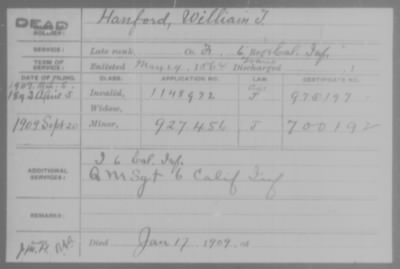 DEAD
Hanford, William T.
SOLDIER:
SERVICE: Late rank, Co. F, 6 Reg't Cal. Inf.
TERM OF SERVICE: Enlisted May 29, 1864 Discharged
DATE OF FILING. CLASS. APPLICATION NO. LAW. CERTIFICATE NO.
1892 April 5 Invalid, 1148972 J 978197
Widow,
1909 Sept 20 Minor, 927456 J 700192
ADDITIONAL SERVICES: I 6 Cal. Inf.
Q M Sgt 6 Calif Inf
REMARKS:
Died Jan 17, 1909, at